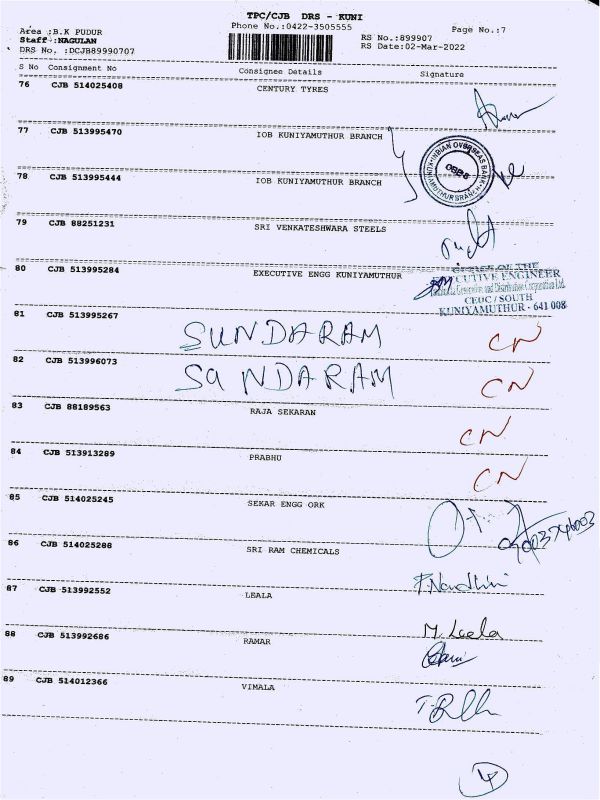 TPC/CJB DRS - KUNI
Phone No.:0422-3505555
Page No.:7
Area :B.K PUDUR
Staff :NAGULAN
DRS No. :DCJB89990707
RS No.:899907
RS Date:02-Mar-2022
S No Consignment No Consignee Details Signature
76 CJB 514025408 CENTURY TYRES
77 CJB 513995470 IOB KUNIYAMUTHUR BRANCH
INDIAN OVERSEAS BANK
KUNIYAMUTHUR BRANCH
78 CJB 513995444 IOB KUNIYAMUTHUR BRANCH
79 CJB 88251231 SRI VENKATESHWARA STEELS
80 CJB 513995284 EXECUTIVE ENGG KUNIYAMUTHUR
OFFICE OF THE
EXECUTIVE ENGINEER
Generation and Distribution Corporation Ltd.
CEDC / SOUTH
KUNIYAMUTHUR - 641 008
81 CJB 513995267 SUNDARAM CN
82 CJB 513996073 SUNDARAM CN
83 CJB 88189563 RAJA SEKARAN CN
84 CJB 513913289 PRABHU CN
85 CJB 514025245 SEKAR ENGG ORK
86 CJB 514025286 SRI RAM CHEMICALS
P. Nandhini
87 CJB 513992552 LEALA
M. Leela
88 CJB 513992686 RAMAR
89 CJB 514012366 VIMALA